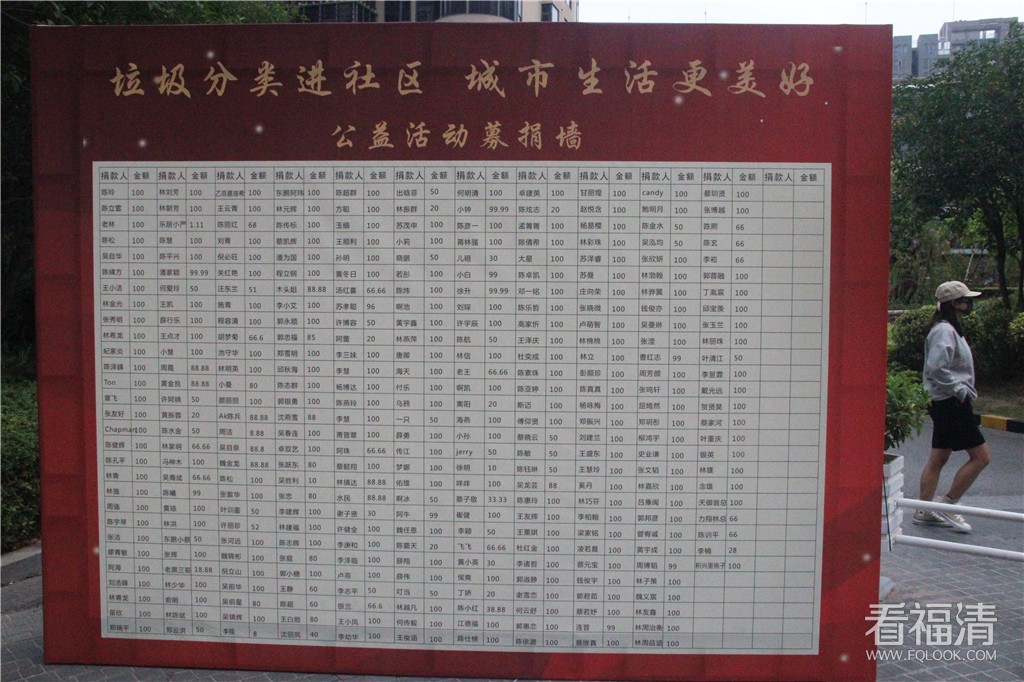 垃圾分类进社区 城市生活更美好
公益活动募捐墙
捐款人 金额 捐款人 金额 捐款人 金额 捐款人 金额 捐款人 金额 捐款人 金额 捐款人 金额 捐款人 金额 捐款人 金额 捐款人 金额 捐款人 金额 捐款人 金额
陈玲 100 林刘芳 100 100 100 陈超群 100 50 何明清 100 卓建英 100 甘丽煌 100 candy 100 蔡钏贤 100
陈立雲 100 林朝芳 100 王云青 100 林元辉 100 方聪 100 林振群 20 小钟 99.99 陈炫志 20 赵悦含 100 鲍明月 100 张博越 100
老林 100 1.11 陈丽红 68 陈传标 100 玉楠 100 苏茂申 100 陈彦一 100 孟菁菁 100 杨易樱 100 陈金水 50 陈刚 66
陈松 100 陈慧 100 刘青 100 蔡凯辉 100 王顺利 100 小莉 100 蒋林强 100 陈倩希 100 林彩珠 100 吴泓均 50 陈玄 66
吴自华 100 陈平兴 100 倪必旺 100 潘为国 100 孙明 100 晓鹏 50 儿砸 30 大星 100 苏泽睿 100 张欣妍 100 李裕 66
陈缘方 100 潘家颖 99.99 关红艳 100 程立钢 100 黄冬日 100 若彤 100 小白 99 陈卓凯 100 苏曼 100 林渤翰 100 郭蓉融 100
王小洁 100 何爱玲 50 汪东兰 51 木头姐 88.88 汤红喜 66.66 陈炜 100 徐升 99.99 邓一铭 100 庄向荣 100 林骅冀 100 丁高宸 100
林金光 100 王凯 100 施青 100 李小文 100 苏孝聪 96 啊池 100 刘琛 100 陈乐哲 100 张晓微 100 钱俊亦 100 邱宝羡 100
张秀明 100 薛行乐 100 程容清 100 郭永顺 100 许博容 50 黄宇鑫 100 许宇辰 100 高家忻 100 卢萌智 100 吴曼琳 100 张玉兰 100
林希龙 100 王贞才 100 胡梦菊 66.6 郭忠福 85 阿蕾 20 林燕萍 100 陈航 50 王泽庆 100 林楠楠 100 张滢 100 林丽珠 100
纪家炎 100 小慧 100 池守华 100 郑雪明 100 李三妹 100 唐卿 100 林信 100 杜奕成 100 林立 100 曹红志 99 叶清江 50
陈泽锋 100 周霞 88.88 林明英 100 邱秋海 100 李慧 100 海天 100 老王 66.66 陈素珠 100 彭顺珍 100 周芳颜 100 李昱霏 100
Ton 100 黄金良 88.88 小曼 80 陈志群 100 杨博达 100 付乐 100 啊凯 100 陈亚婷 100 陈真真 100 张鸣轩 100 戴光远 100
章飞 100 许阿娥 50 颜丽丽 100 郭银勇 100 陈燕玲 100 乌鸦 100 南阳 20 斯迈 100 杨咏梅 100 屈皓然 100 贺贤昊 100
张友好 100 黄振蓉 20 Ak陈兵 88.88 沈燕雪 88 李慧 100 一只 50 海燕 100 傅仰贤 100 郑振兴 100 郑玥彤 100 蔡家河 100
Chapman 100 陈水金 50 周洁 8.88 吴春连 100 萧晋章 100 薛勇 100 小孙 100 蔡晓云 50 刘建兰 100 柳鸿宇 100 叶重庆 100
陈健辉 100 林蒙珂 66.66 吴自泉 88.8 卓双艺 100 阿珠 66.66 传江 100 jerry 50 陈敏 50 王盛东 100 史业谦 100 银英 100
陈孔平 100 冯梓木 100 魏金龙 88.88 张跃东 80 蔡懿翔 100 梦娜 100 徐明 10 陈钰琳 50 王慧玲 100 张文韬 100 林镇 100
林青 100 吴裔斌 66.66 陈松 100 吴胜利 10 林镇达 88.88 佑雄 100 咩咩 100 吴龙芸 88 奚丹 100 林嘉欣 100 念雄 100
林强 100 陈曦 99 张敲华 100 张忠 80 水民 88.88 啊冰 50 蔡子敬 33.33 陈惠玲 100 林巧芬 100 吕豫闽 100 100
周强 100 黄琼 100 叶训銮 50 李建辉 100 谢子贤 30 阿牛 99 崔健 100 王友辉 100 李柏翰 100 郭邦彦 100 66
陈宇琴 100 林洪 100 许丽珍 52 林建福 100 许健全 100 魏任恩 100 李颖 50 王景琪 100 梁家铭 100 曾宥诚 100 陈训平 66
张洁 100 50 张河远 100 陈志辉 100 李庚和 100 陈要天 20 飞飞 66.66 杜红金 100 凌若晨 100 黄宇成 100 李楠 28
缪青敏 100 张辉 100 魏锦彬 100 张顺 80 李泽临 100 薛翔 100 黄小英 30 李诸哲 100 蔡元宝 100 周博韬 99 100
阿海 100 18.88 倪立山 100 郭小穗 100 卢燕 100 薛伟 100 侯爽 100 郭淑静 100 钱俊宇 100 林子策 100
刘浩锋 100 林少华 100 吴前华 100 王静 60 李志平 50 叮当 50 丁娇 20 谢雪恋 100 郭赵茹 100 魏义宸 100
林青龙 100 俞明 100 吴前星 80 陈超 60 银兰 66.6 林越凡 100 陈小红 38.88 何云舒 100 蔡若妤 100 林友鑫 100
星欣 100 林姈斌 100 吴镇辉 100 王白勋 80 王小凤 100 何传毅 100 江德福 100 郭惠恋 100 连晋 99 林周治衡 100
郑瑞平 100 郑运洪 50 李筱 8 沈丽凤 40 李幼华 100 王俊涵 100 陈仕楷 100 陈依源 100 蔡继真 100 林周品涵 100
看福清
WWW.FQLOOK.COM